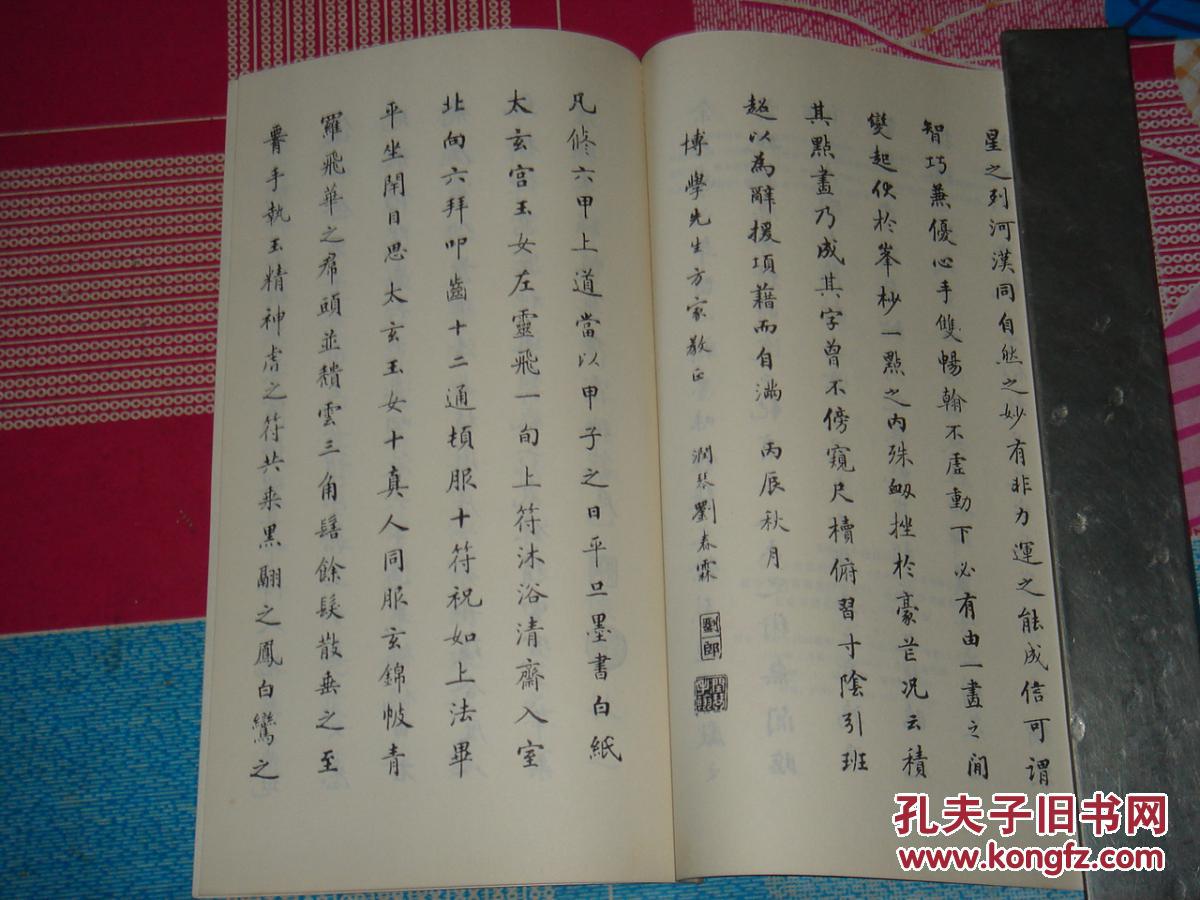 星之列河漢同自然之妙有非力運之能成信可謂
智巧兼優心手雙暢翰不虛動下必有由一畫之間
變起伏於峯杪一點之內殊衂挫於豪芒況云積
其點畫乃成其字曾不傍窺尺牘俯習寸陰引班
超以為辭援項藉而自滿 丙辰秋月
博學先生方家教正 潤琴劉春霖
劉郎
凡修六甲上道當以甲子之日平旦墨書白紙
太玄宮玉女左靈飛一旬上符沐浴清齋入室
北向六拜叩齒十二通頓服十符祝如上法畢
平坐閉目思太玄玉女十真人同服玄錦帔青
羅飛華之帬頭並穨雲三角髻餘髮散垂之至
膂手執玉精神虎之符共乘黑翮之鳳白鸞之
孔夫子旧书网
www.kongfz.com